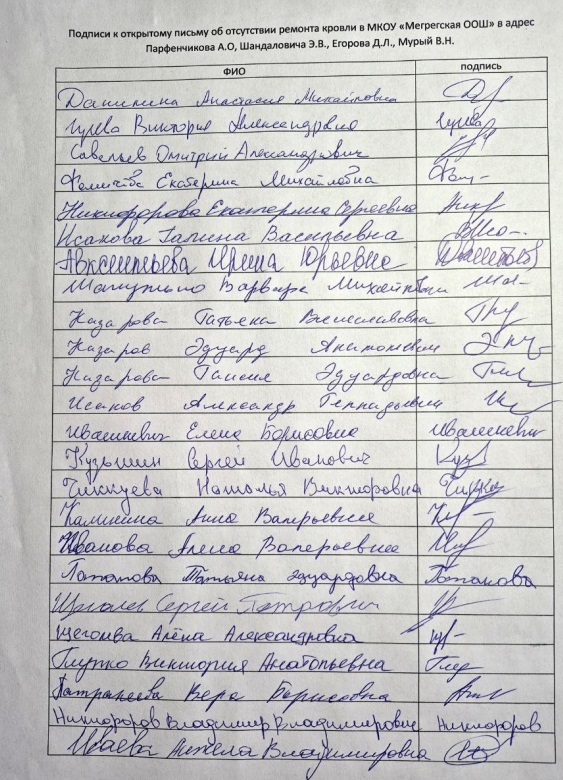 Подписи к открытому письму об отсутствии ремонта кровли в МКОУ «Мегрегская ООШ» в адрес
Парфенчикова А.О, Шандаловича Э.В., Егорова Д.Л., Мурый В.Н.
ФИО подпись
Данилина Анастасия Михайловна
Гулева Виктория Александровна
Савельев Дмитрий Александрович
Фомичёва Екатерина Михайловна
Никифорова Екатерина Сергеевна
Исакова Галина Васильевна
Авксентьева Ирина Юрьевна
Варвара Михайловна
Назарова Татьяна Вячеславовна
Назаров Эдуард Анатольевич
Назарова Таисия Эдуардовна
Исаков Александр Геннадьевич
Ивашкевич Елена Борисовна Ивашкевич
Кузьмин Сергей Иванович
Чиккуева Наталья Викторовна
Калинина Анна Валерьевна
Иванова Алена Валерьевна
Потапова Татьяна Эдуардовна Потапова
Щеголев Сергей Петрович
Щеголева Алёна Александровна
Глупко Виктория Анатольевна
Вера Борисовна
Никифоров Владимир Владимирович Никифоров
Анжела Владимировна